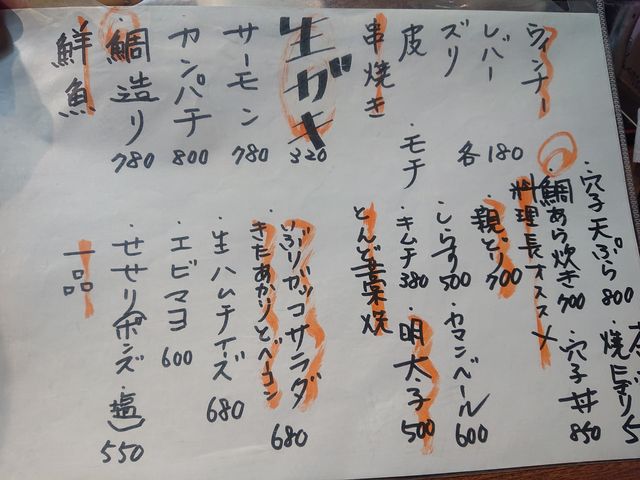 鮮魚
鯛造り 780
カンパチ 800
サーモン 780
生ガキ 320
串焼き
皮
・モチ
ズリ
レバー
ウィンナー
各180
一品
・せせり(ポンズ・塩) 550
・エビマヨ 600
・生ハムチーズ 680
・きたあかりとベーコン
いぶりガッコサラダ 680
とんど藁焼
・キムチ 380
・明太子 500
・しらす 500
・カマンベール 600
・親どり 700
料理長オススメ
・鯛あら炊き 700
・穴子天ぷら 800
・穴子丼 850
焼にぎり 5